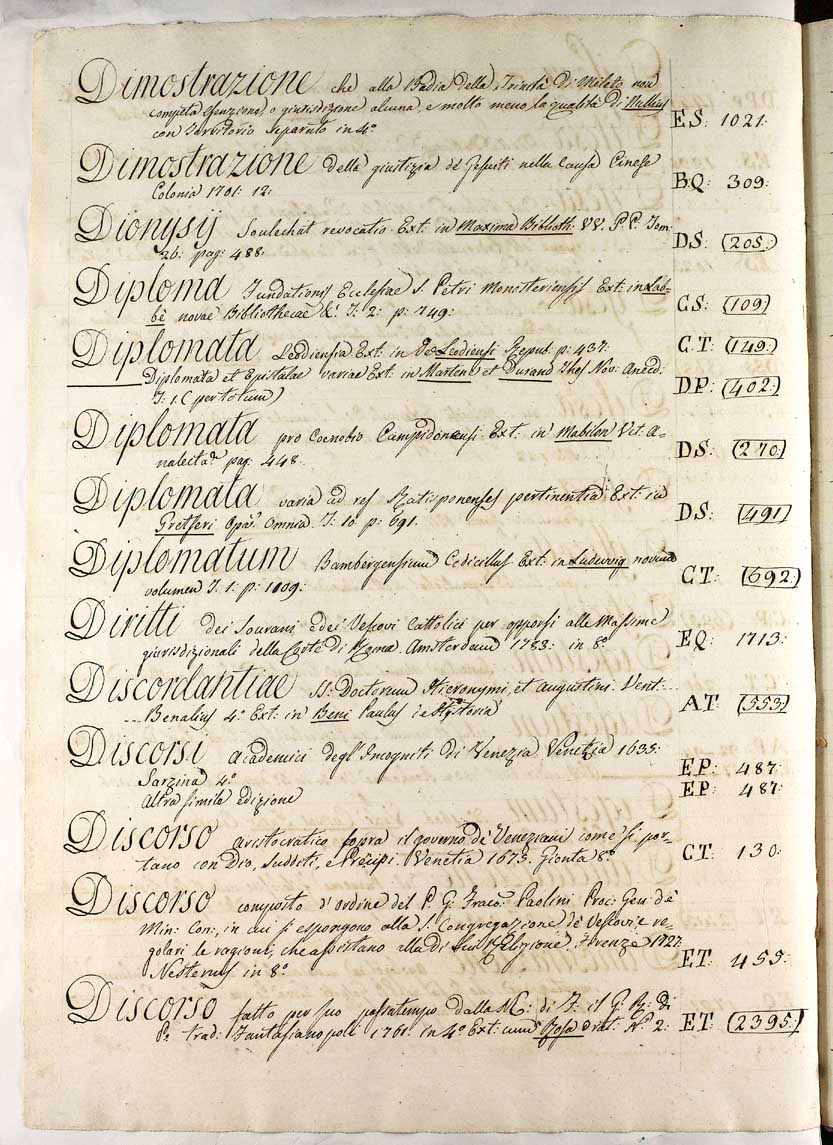 Dimostrazione che alla Badia della Trinità di Mileto non
competa esenzione, o giurisdizione alcuna, e molto meno la qualità di Nullius
con Territorio separato in 4º ES: 1021:
Dimostrazione della giustizia de' Gesuiti nella Causa Cinese
Colonia 1701: 12: BQ: 309:
Dionysij Soulechat revocatio Ext: in Maxima Biblioth: VV. P.P. Tom:
26: pag: 488: DS: (205:)
Diploma Fundationis Ecclesiae S. Petri Monasteriensis Ext: in Lab-
bè novae Bibliothecae &c: T: 2: p: 749: CS: (109)
Diplomata Leodiensia Ext: in Leodiensi Repub: p: 437: CT: (149:)
Diplomata et Epistolae variae Ext: in Martene et Durand Thes: Nov: Anecd:
T: 1. (per totum) DP: (402:)
Diplomata pro Coenobio Campidonensi Ext: in Mabilon Vet: A-
nalecta pag: 448: DS: (270:)
Diplomata varia ad res Ratisponenses pertinentia Ext: in
Gretseri Opa: Omnia T: 10: p: 691: DS: (491)
Diplomatum Bambergensium Codicillus Ext: in Ludewig novum
volumen T: 1: p: 1009: CT: (692:)
Diritti dei Sovrani e dei Vescovi Cattolici per opporsi alle Massime
giurisdizionali della Corte di Roma. Amsterdam 1783: in 8º EQ: 1713:
Discordantiae SS: Doctorum Hieronymi, et Augustini. Vent:
Benalius 4º Ext: in Beni Paulus de Hystoria AT: (553:)
Discorsi Academici degl'Incogniti di Venezia Venetia 1635:
Sarzina 4º EP: 487:
Altra simile edizione EP: 487:
Discorso aristocratico sopra il governo de' Veneziani come si por-
tano con Dio, Sudditi, e Prencipi. Venetia 1675. Gionta 8º CT: 130:
Discorso composto d'ordine del P. G. Paolini Proc: Gen: de'
Min: Con:, in cui si espongono alla S. Congregazione de' Vescovi e re-
golari le ragioni, che assistano alla di Elezione. Firenze 1727:
Nestenus in 8º ET: 455:
Discorso fatto per suo passatempo dalla M: di F: il G: R: di
P: trad: Fantasianopoli 1761: in 4º Ext: cum Rosa Nº 2: ET: (2395:)